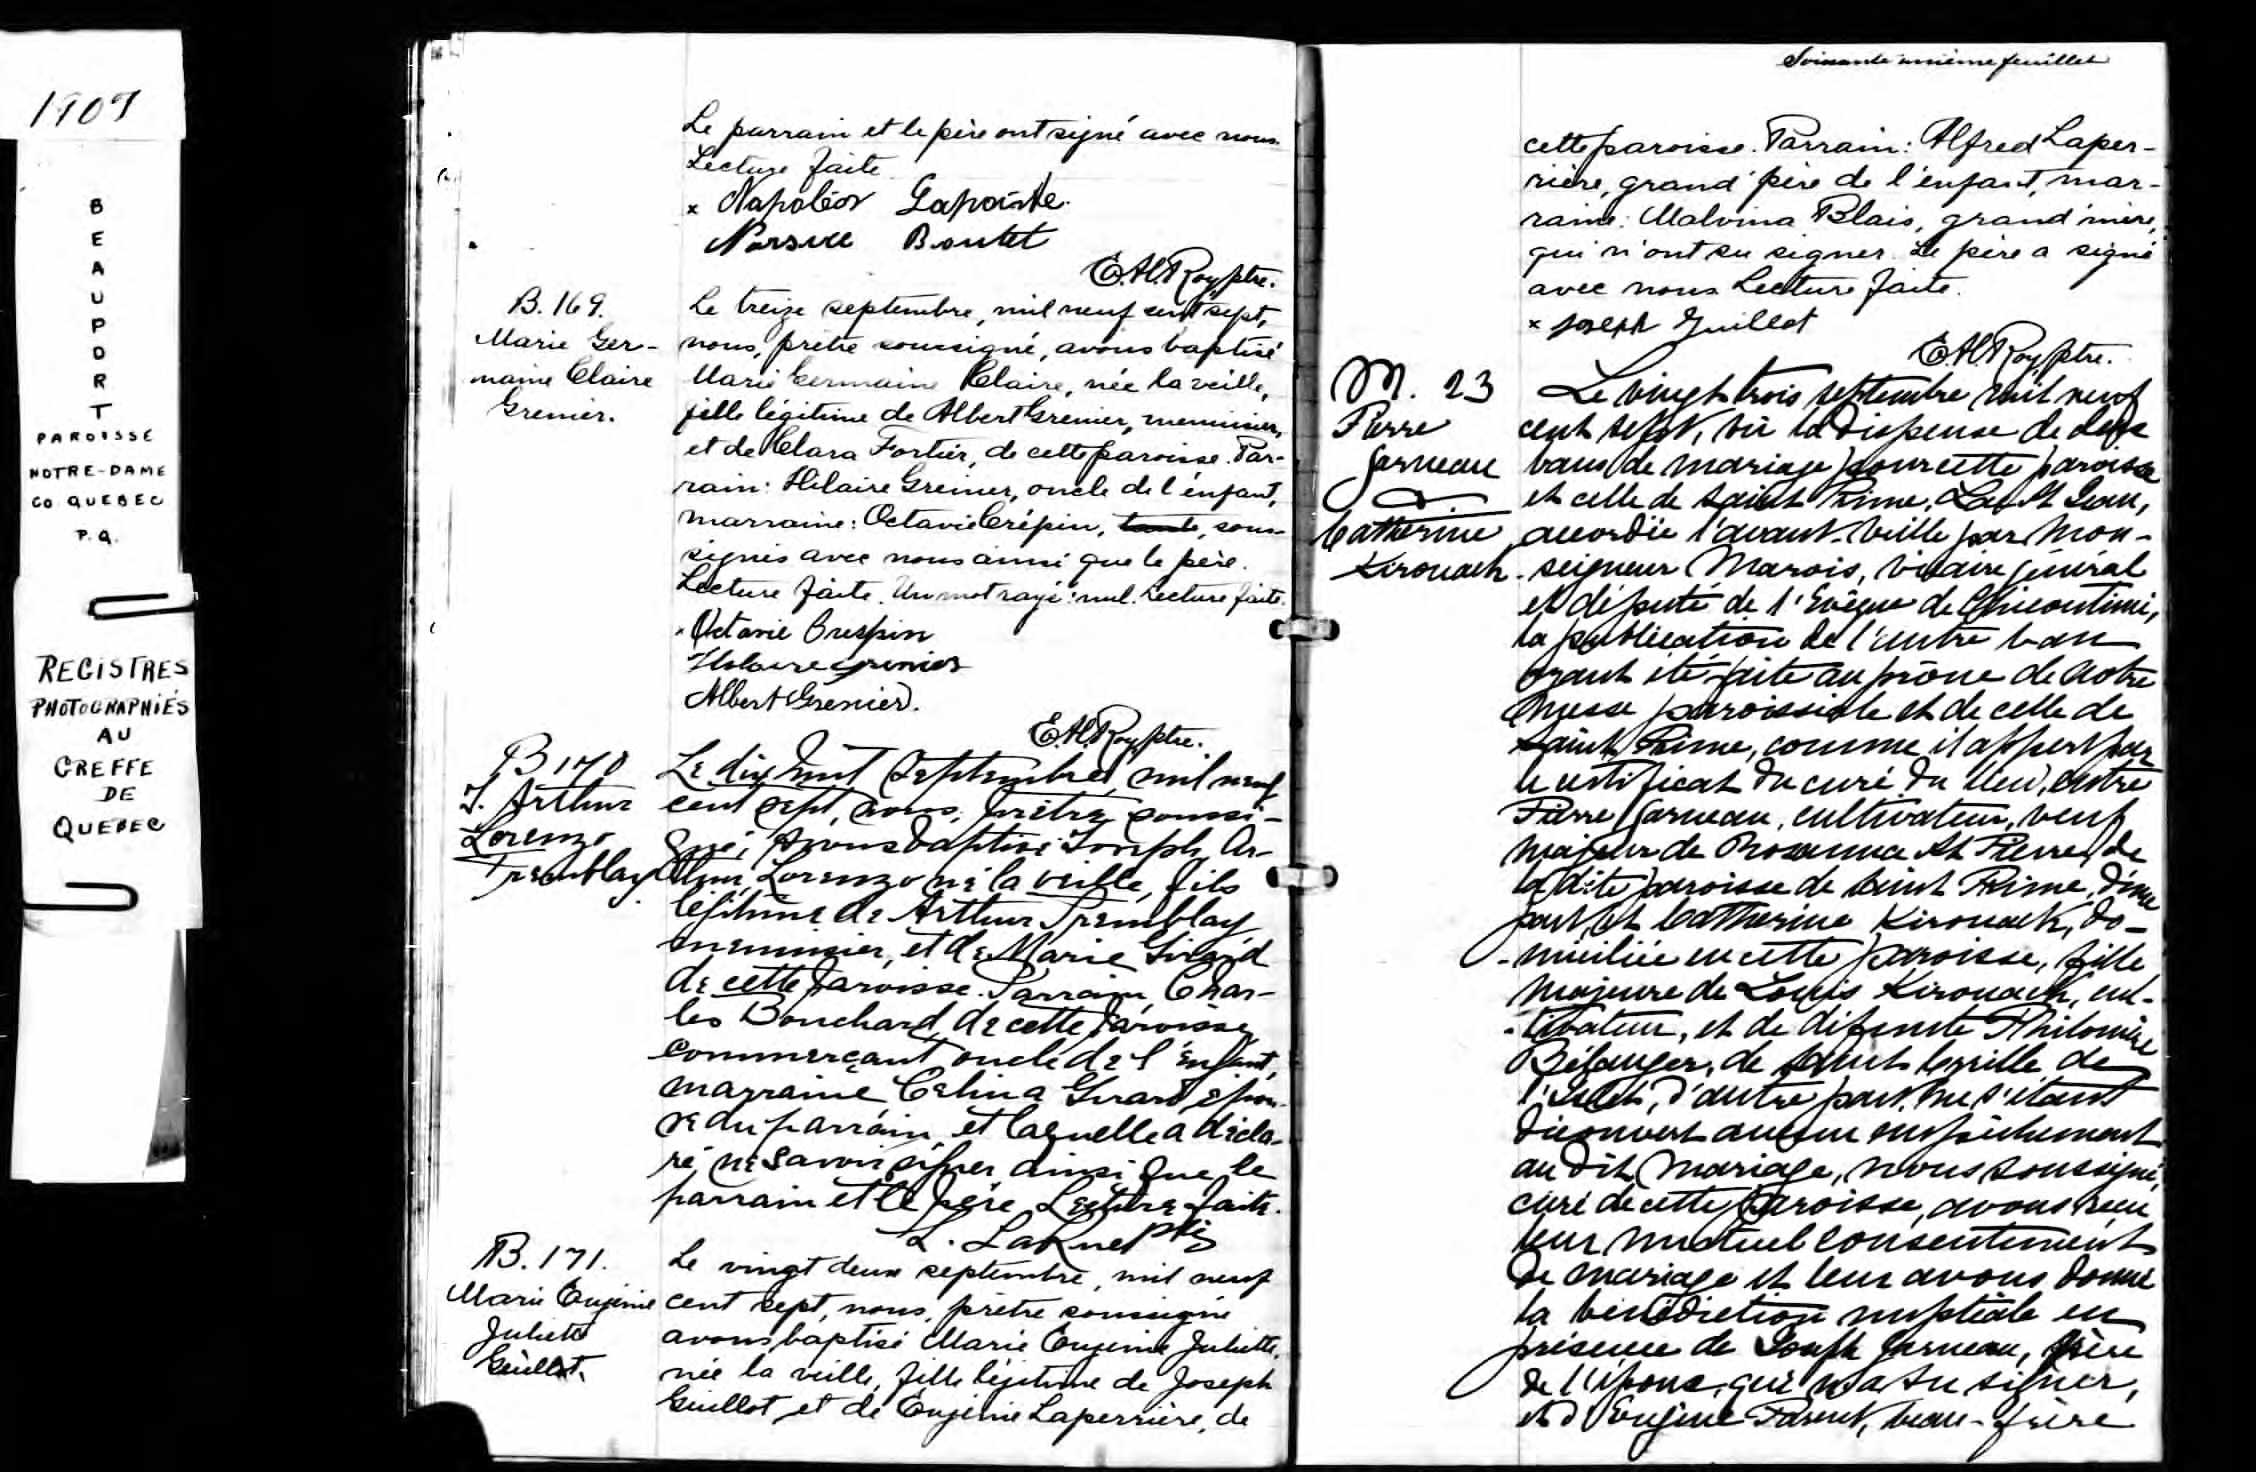 1907
B
E
A
U
P
O
R
T
PAROISSE
NOTRE-DAME
CO. QUEBEC
P.Q.
REGISTRES
PHOTOGRAPHIÉS
AU
GREFFE
DE
QUEBEC
Le parrain et le père ont signé avec nous.
Lecture faite.
x Napoléon Lapointe.
Narsice Boutet
E.Al.Roy, ptre.
B. 169.
Marie Ger-
maine Claire
Grenier.
Le treize septembre, mil neuf cent sept,
nous, prêtre soussigné, avons baptisé
Marie Germaine Claire, née la veille,
fille légitime de Albert Grenier, menuisier,
et de Clara Fortier, de cette paroisse. Par-
rain: Hilaire Grenier, oncle de l'enfant,
marraine: Octavie Crépin, tante, sous-
signés avec nous ainsi que le père.
Lecture faite. Un mot rayé: nul. Lecture faite.
x Octavie Crespin
Hilaire Grenier
Albert Grenier.
E.Al.Roy, ptre.
B 170
J. Arthur
Lorenzo
Tremblay.
Le dix huit Septembre, mil neuf
cent sept, nous, prêtre soussi-
gné, avons baptisé Joseph, Ar-
thur, Lorenzo né la veille, fils
légitime de Arthur Tremblay
menuisier, et de Marie Girard
de cette paroisse. Parrain, Char-
les Bouchard, de cette paroisse
commerçant oncle de l'enfant,
marraine Celina Girard, épou-
se du parrain, et laquelle a décla-
ré ne savoir signer ainsi que le
parrain et le père. Lecture faite.
L. LaRue ptre
B. 171.
Marie Eugénie
Juliette
Guillot.
Le vingt deux septembre, mil neuf
cent sept, nous, prêtre soussigné
avons baptisé Marie Eugénie Juliette,
née la veille, fille légitime de Joseph
Guillot, et de Eugénie Laperrière, de
Soixante unième feuillet
cette paroisse. Parrain: Alfred Laper-
rière, grand'père de l'enfant, mar-
raine: Malvina Blais, grand'mère,
qui n'ont su signer. Le père a signé
avec nous. Lecture faite.
x Joseph Guillot
E.Al.Roy, ptre.
M. 23
Pierre
Garneau
&
Catherine
Kirouack
Le vingt trois septembre mil neuf
cent sept, vu la dispense de deux
bans de mariage pour cette paroisse
et celle de saint Prime, Lac St Jean,
accordée l'avant-veille par Mon-
-seigneur Marois, vicaire général
et député de l'Evêque de Chicoutimi,
la publication de l'autre ban
ayant été faite au prône de notre
Messe paroissiale et de celle de
saint Prime, comme il appert par
le certificat du curé du lieu, entre
Pierre Garneau, cultivateur, veuf
majeur de Rosanna St Pierre, de
la dite paroisse de saint Prime, d'une
part, et Catherine Kirouack, do-
-miciliée en cette paroisse, fille
majeure de Louis Kirouack, cul-
-tivateur, et de défunte Philomène
Bélanger, de saint Cyrille de
l'Islet, d'autre part, ne s'étant
découvert aucun empêchement
au dit Mariage, nous soussigné,
curé de cette paroisse, avons reçu
leur mutuel consentement
de mariage et leur avons donné
la bénédiction nuptiale en
présence de Joseph Garneau, frère
de l'époux, qui n'a su signer,
et d'Eugène Parent, beau-frère